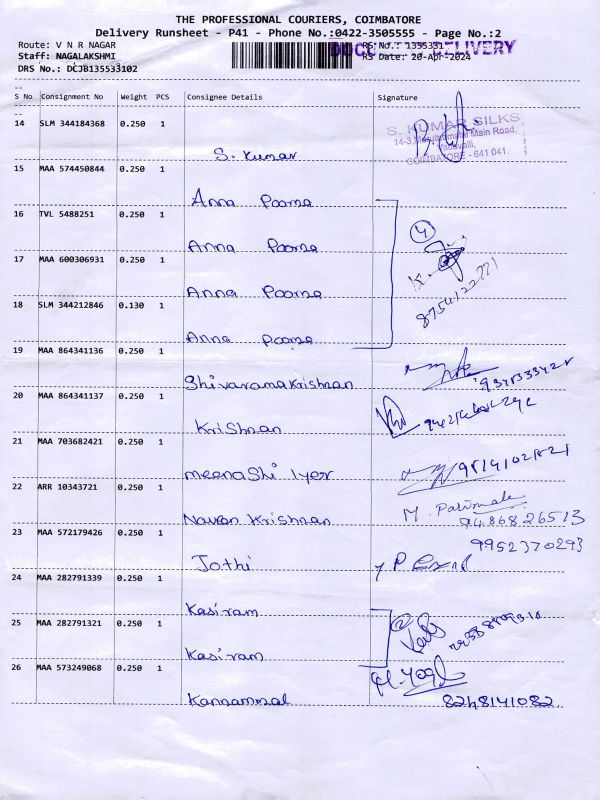 THE PROFESSIONAL COURIERS, COIMBATORE
Delivery Runsheet - P41 - Phone No.:0422-3505555 - Page No.:2
Route: V N R NAGAR
RS No.: 1355331
DELIVERY
Staff: NAGALAKSHMI
RS Date: 20-Apr-2024
DRS No.: DCJB135533102
S No Consignment No Weight PCS Consignee Details Signature
14 SLM 344184368 0.250 1
S. Kumar
S. KUMAR SILKS
14-3, Main Road,
Vadavalli,
COIMBATORE - 641 041.
15 MAA 574450844 0.250 1
Anna Poorna
16 TVL 5488251 0.250 1
Anna Poorna
4
17 MAA 600306931 0.250 1
Anna Poorna
8754122221
18 SLM 344212846 0.130 1
Anna Poorna
19 MAA 864341136 0.250 1
Shivaramakrishnan
20 MAA 864341137 0.250 1
Krishnan
21 MAA 703682421 0.250 1
meenaShi Iyer
22 ARR 10343721 0.250 1
Naveen Krishnan
M. Parimala
9486826513
23 MAA 572179426 0.250 1
Jothi
9952370293
24 MAA 282791339 0.250 1
Kasiram
25 MAA 282791321 0.250 1
Kasiram
2
26 MAA 573249068 0.250 1
Kannammal
8248141082